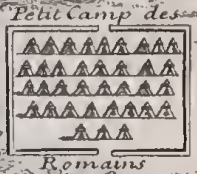 Petit Camp des
Romains